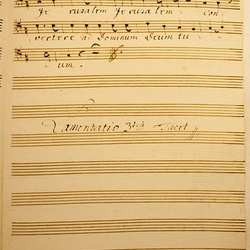 Je rusalem Jerusalem con
vertere ad Dominum Deum tu
um.
Lamentatio 3tia Tacet